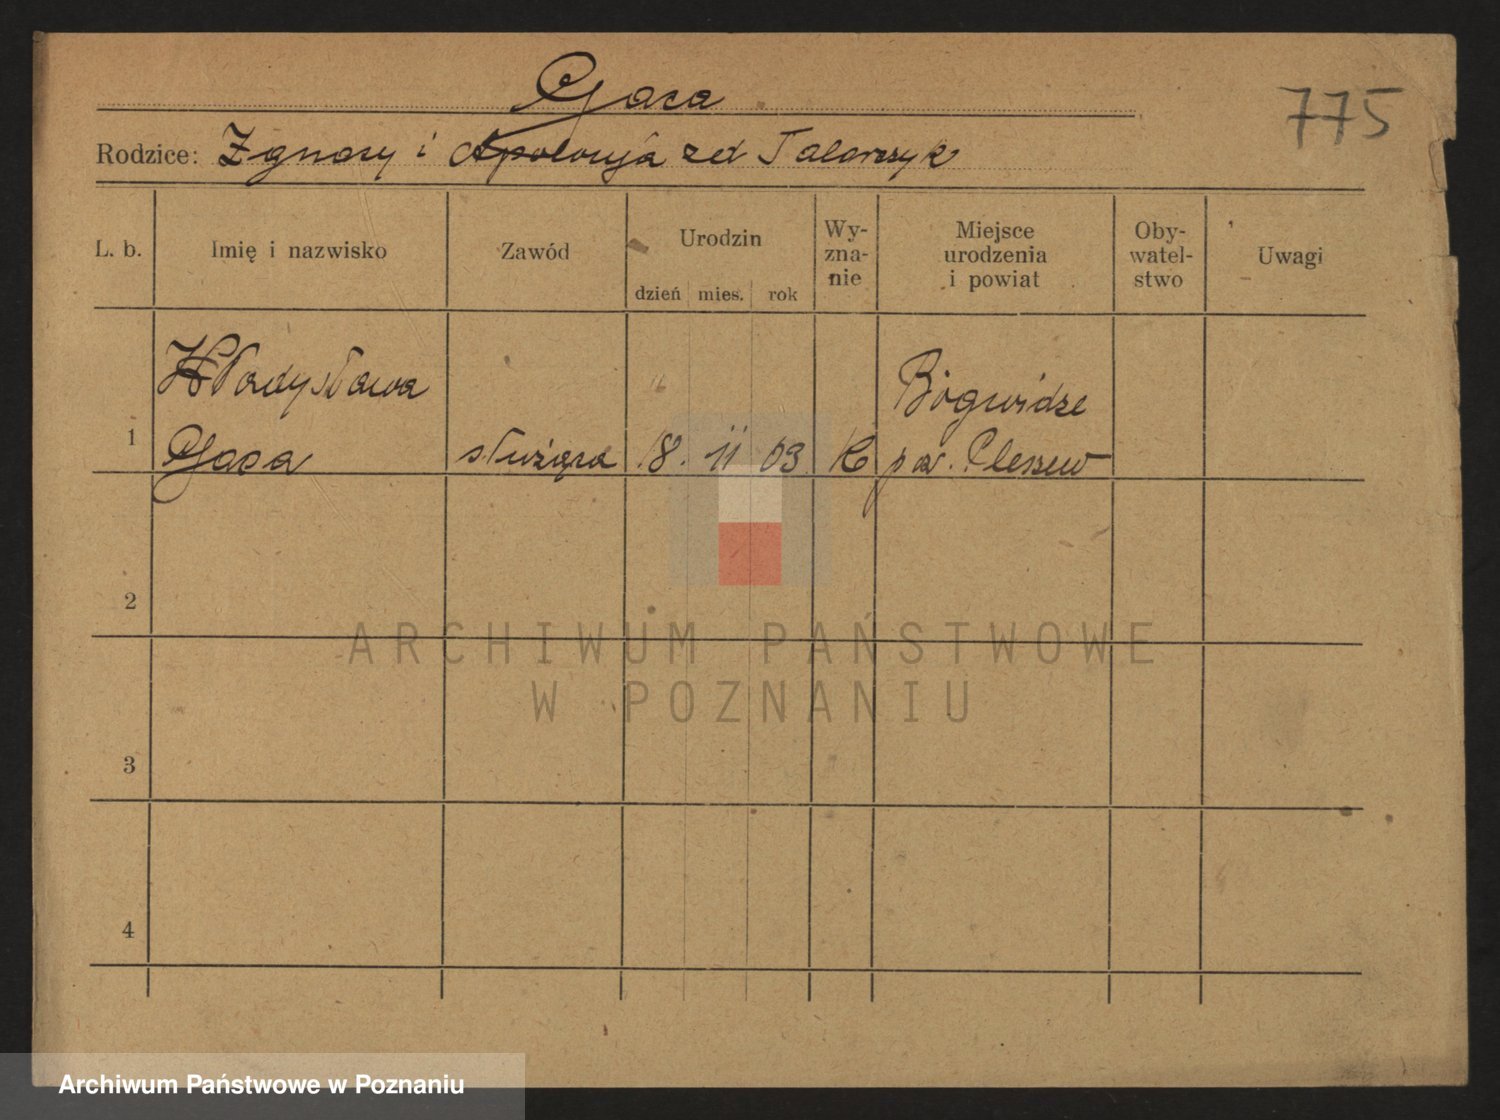 Gaca
775
Rodzice: Ignacy i Apolonja zd Talarczyk
L. b. Imię i nazwisko Zawód Urodzin dzień mies. rok Wy-zna-nie Miejsce urodzenia i powiat Oby-watel-stwo Uwagi
Władysława
1 Gaca służąca 18. 11 03 K Bógwidze
pow. Pleszew
2
3
4
ARCHIWUM PAŃSTWOWE
W POZNANIU
Archiwum Państwowe w Poznaniu